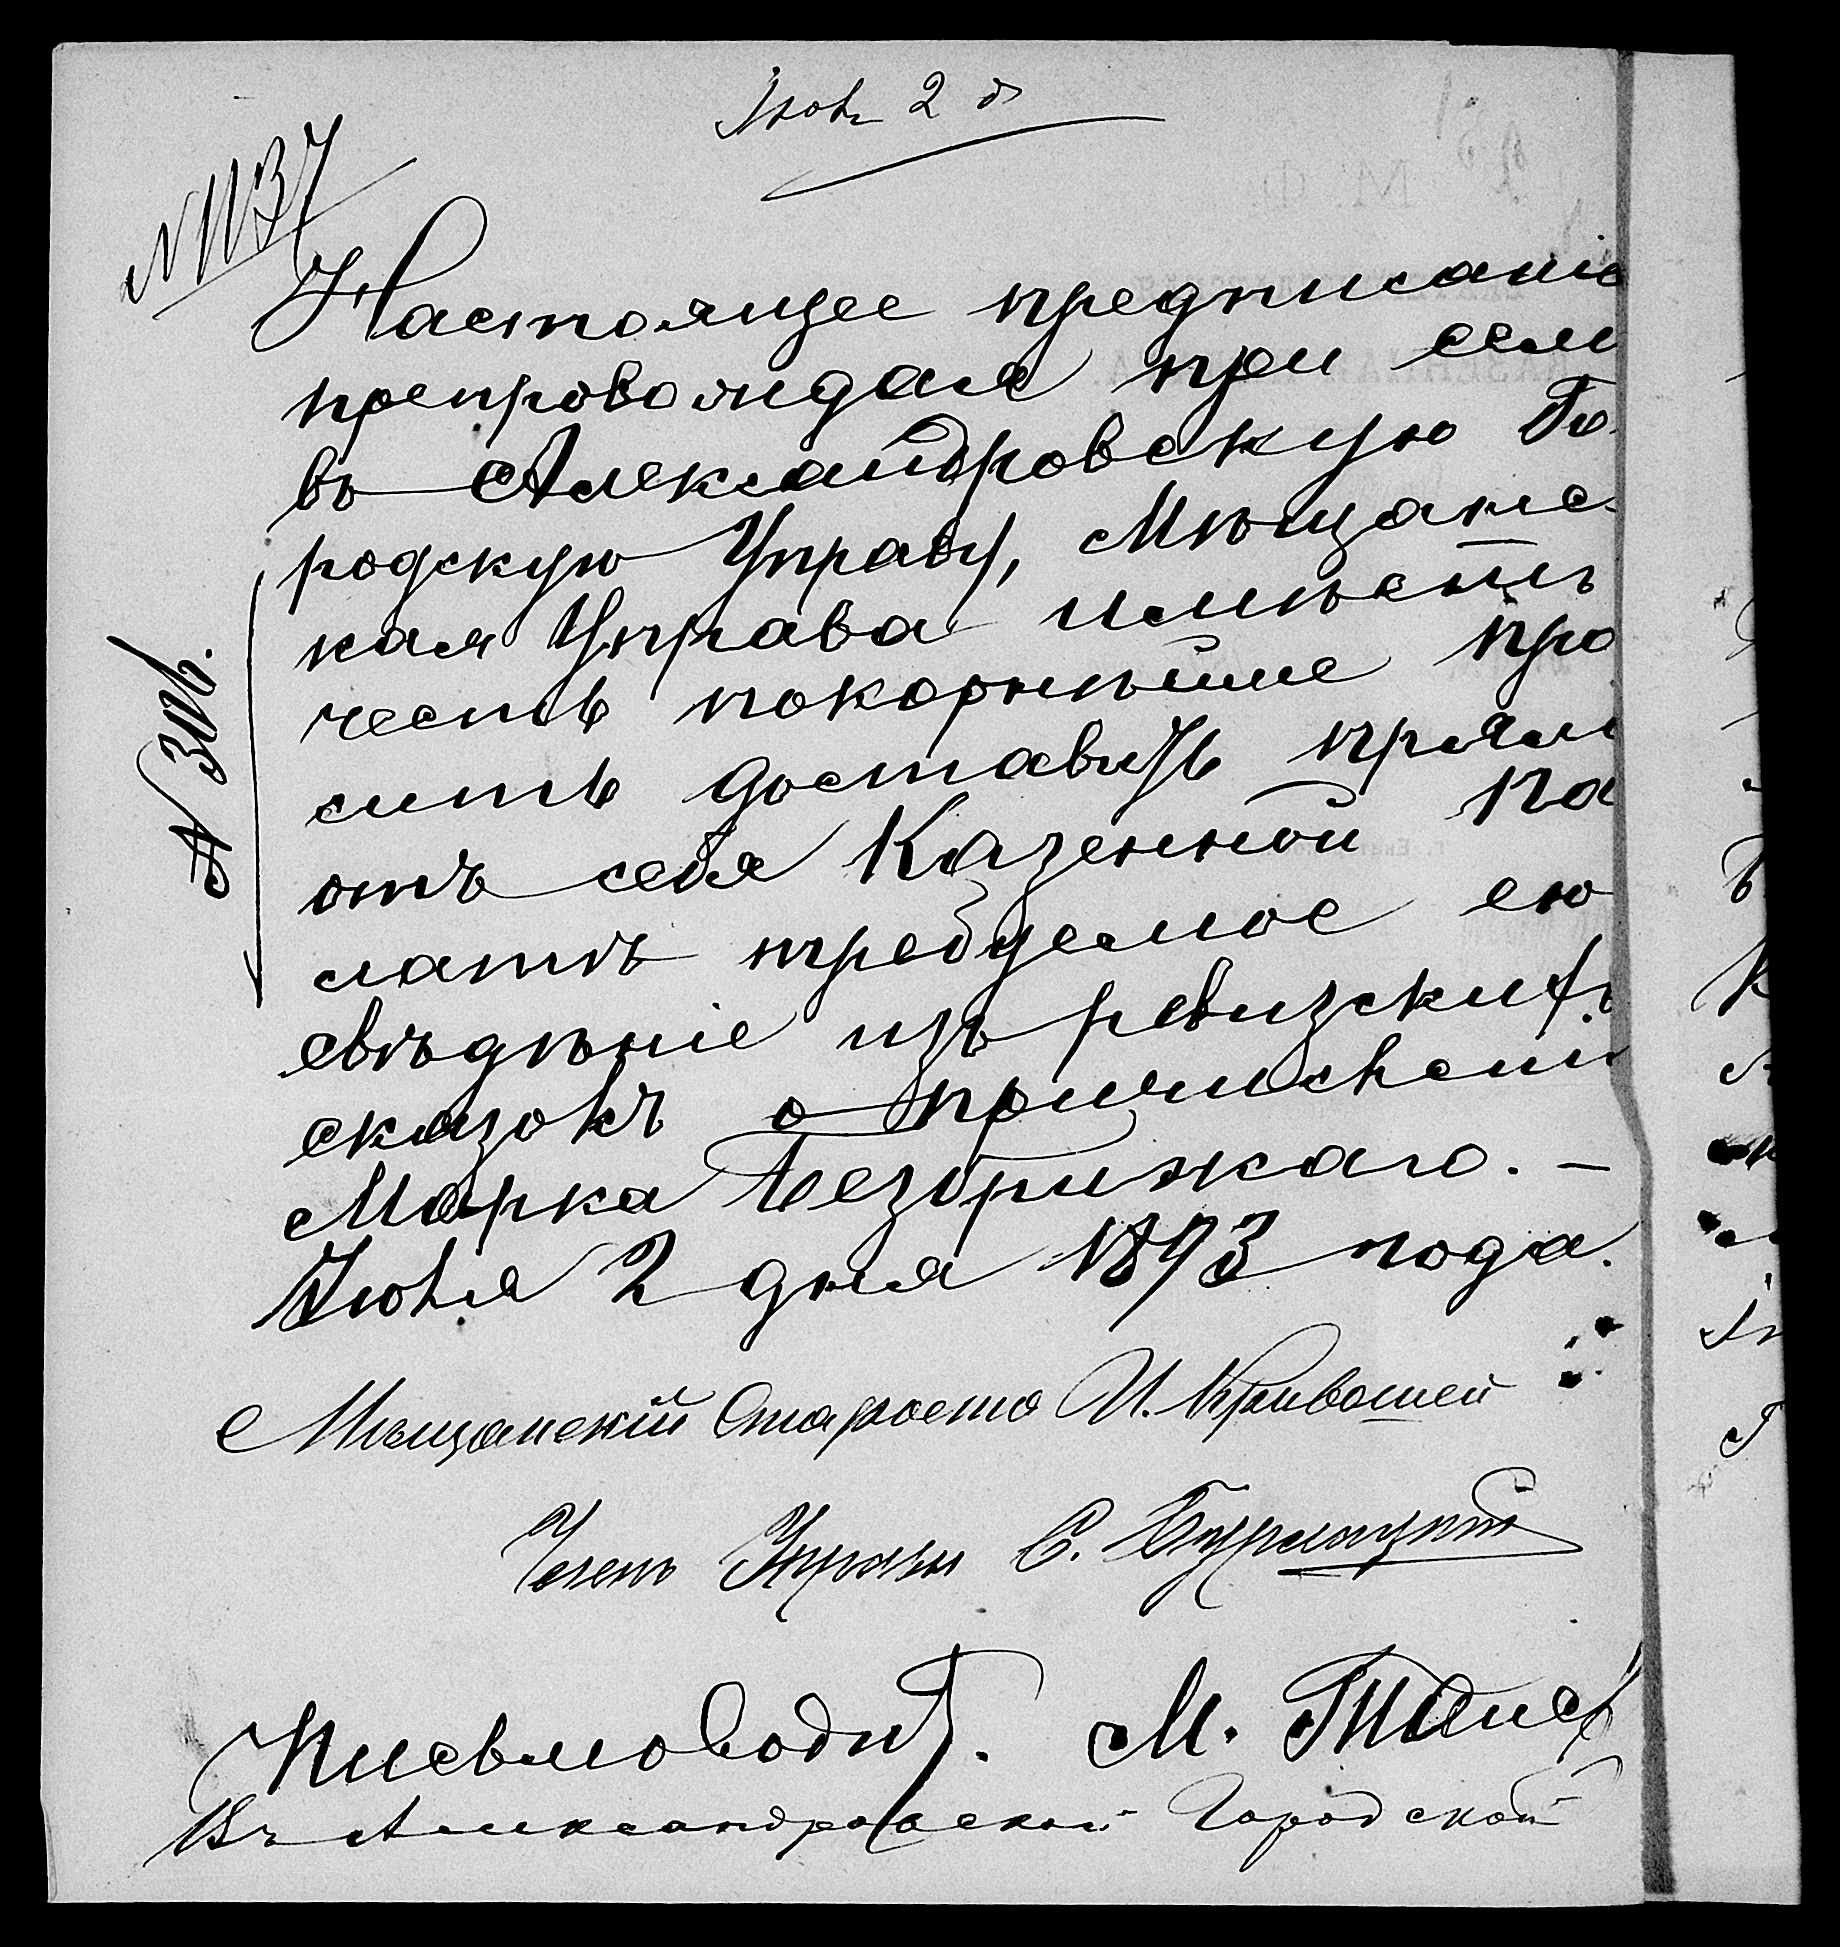 Іюня 2 д
№ 1137
Настоящее предписаніе
препровождая при семъ
въ Александровскую Го-
родскую Управу, Мѣщанс-
кая Управа имѣетъ
честь покорнѣйше про
сить доставить прямо
отъ себя Казенной Па
латѣ требуемое ею
свѣдѣніе изъ ревизскихъ
сказокъ о причисленіи
Марка Безбрижаго. —
Іюня 2 дня 1893 года.
Мѣщанскій Староста И. Кривошей
Членъ Управы С.
Письмоводит. М.
Въ Александровской Городской